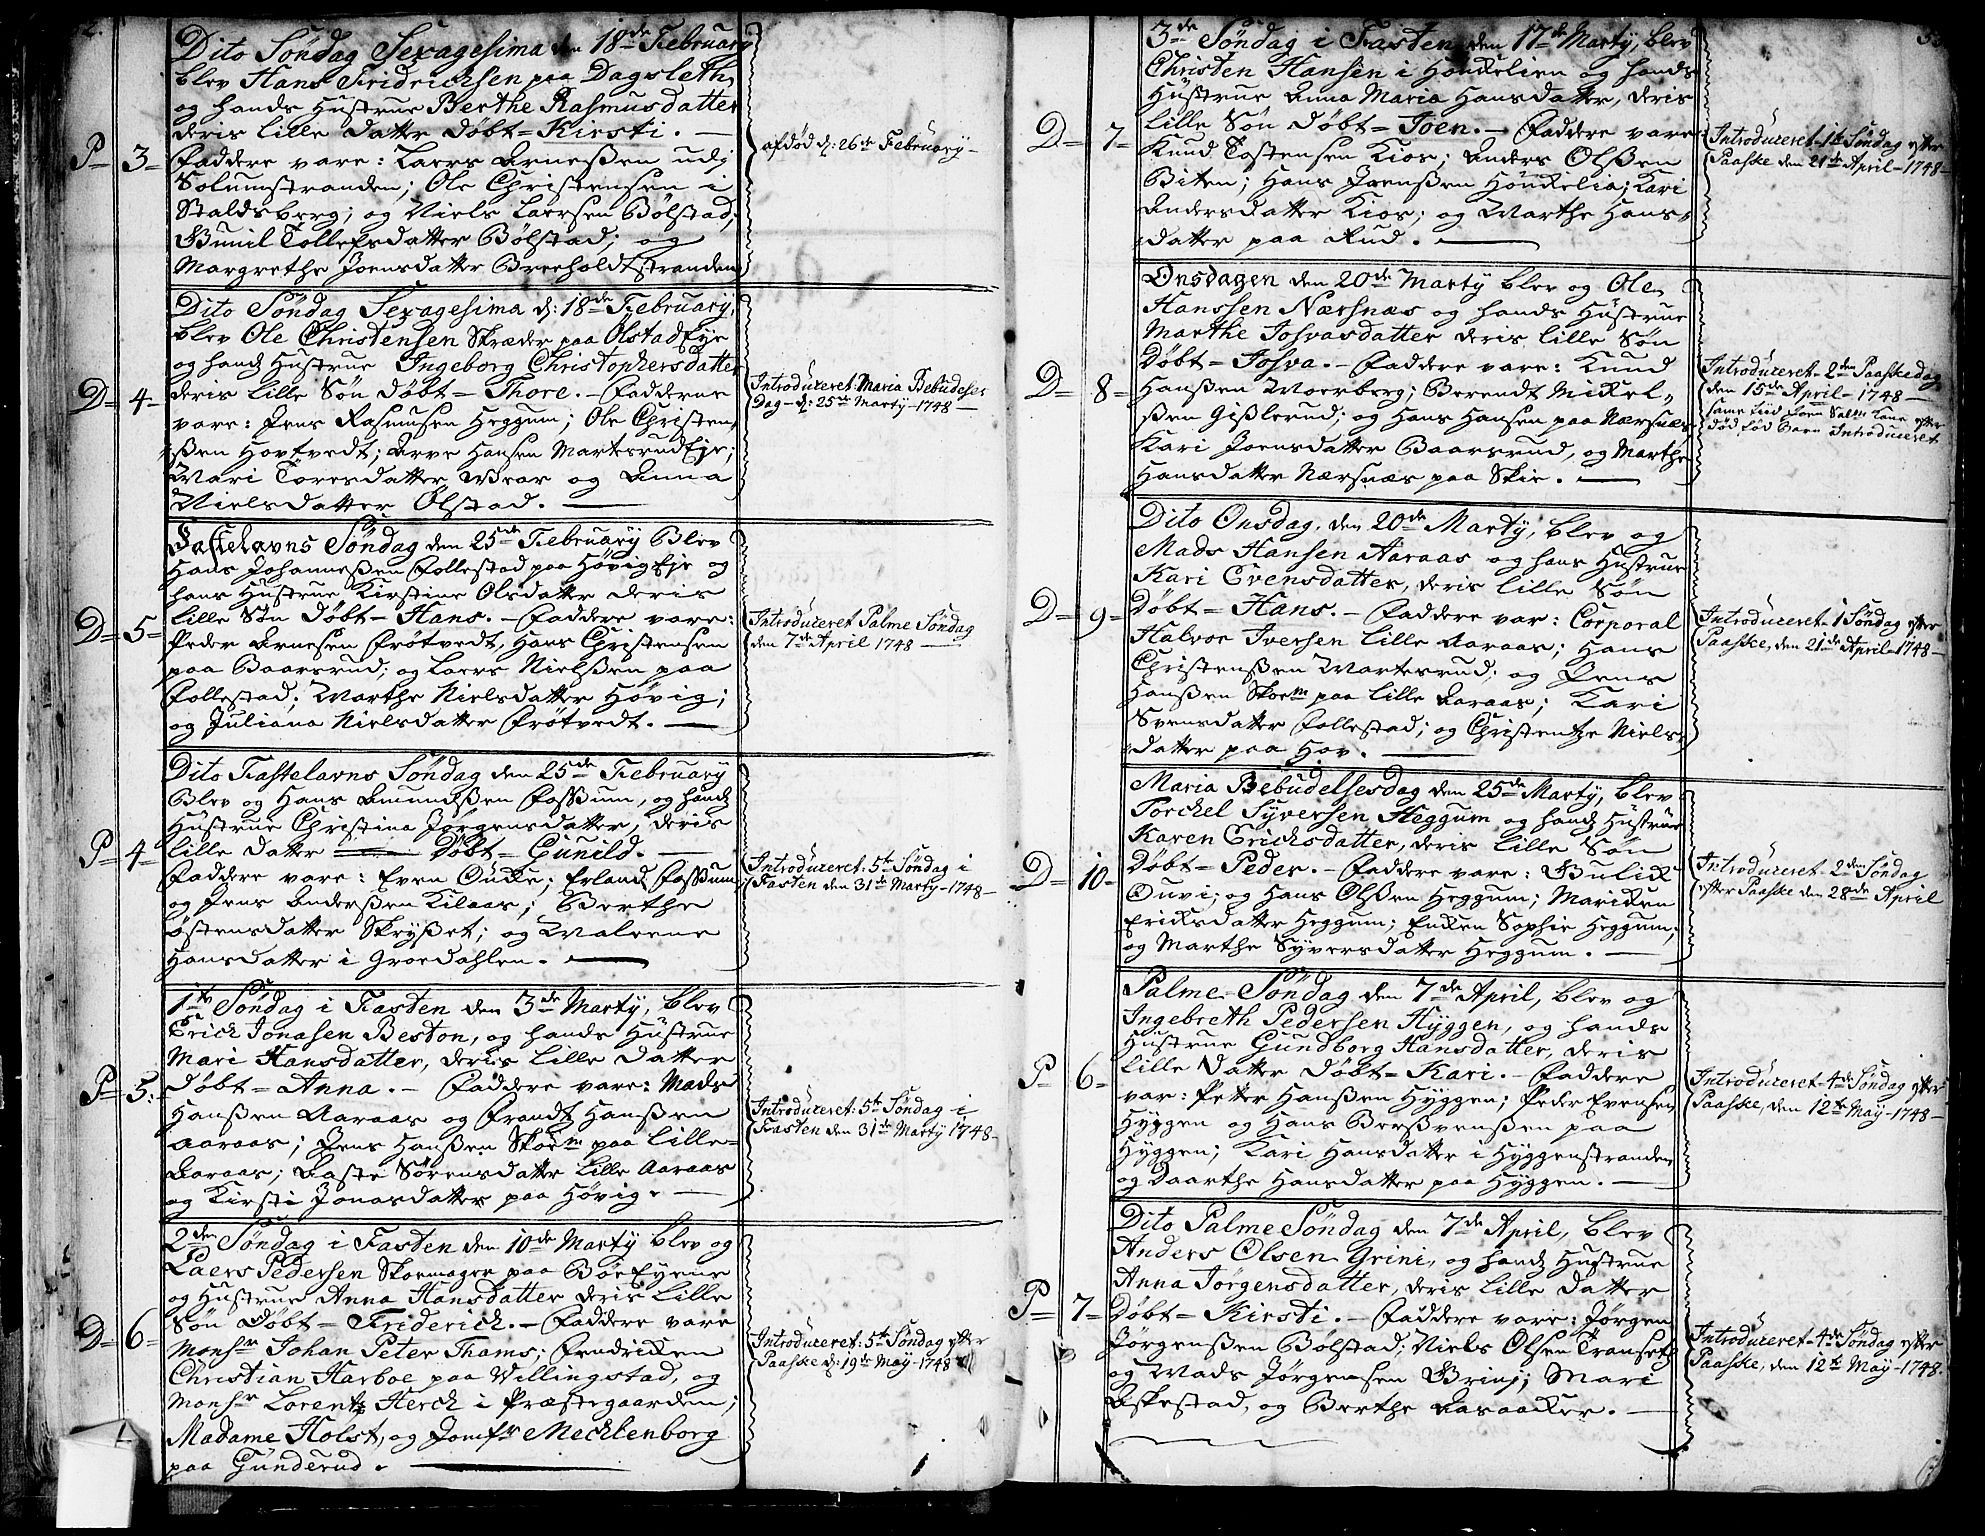 Dito Söndag Sexagesima den 18de February
blev Hans Fridrichsen paa Dagsleth
og hands Hustrue Berthe Rasmusdatter
deris lille datter döbt = Kirsti. —
P = 3 =
Faddere vare: Laers Arneßen udj
Solumstranden; Ole Christensen i
Staldsberg; og Niels Laersen Bölstad;
Gunil Tollefsdatter Bölstad; og
Margrethe Joensdatter Breeholdtstranden
afdöd d: 26de February —
Dito Söndag Sexagesima d: 18de February,
blev Ole Christensen Skræder paa Ölstad Eye
og hands Hustrue Ingeborg Christophersdatter
D = 4 =
deris lille Sön döbt = Thore. — Fadderne
vare: Jens Rasmusen Heggum; Ole Christen,
,ßen Hovtvedt; Arve Hansen Martesrud Eje;
Mari Toresdatter Wear og Anna
Nielsdatter Ölstad. —
Introduceret: Maria Bebudelses
Dag — d: 25de Marty — 1748 —
Fastelavns Söndag den 25de February Blev
Hans Johanneßen Follestad paa Hövig Eje og
hans Hustrue Kirstine Olsdatter deris
D = 5 =
lille Sön döbt = Hans. — Faddere vare:
Peder Arnesen Frötvedt, Hans Christensen
paa Baarsrud; og Laers Nielßen paa
Follestad; Marthe Nielsdatter Hövig;
og Juliana Nielsdatter Frötvedt. —
Introduceret Palme Söndag
den 7de April 1748 —
Dito Fastelavns Söndag den 25de February
Blev og Hans Amundßen Foßum, og hands
Hustrue Christina Jörgensdatter, deris
P = 4 =
lille datter döbt = Gunild. —
Faddere vare: Even Oucke; Erland Foßum
og Jens Anderßen Kilaas; Berthe
Östensdatter Skryßet; og Malene
Hansdatter i Groedahlen. —
Introduceret: 5te Söndag i
Fasten den 31de Marty — 1748 —
1te Söndag i Fasten den 3de Marty, blev
Erich Jonasen Beston, og hands Hustrue
Mari Hansdatter, deris lille datter
P = 5:
döbt = Anna. — Faddere vare: Mads
Hanßen Aaraas og Frandtz Hanßen
Aaraas; Jens Hanßen Skoem paa lille =
Aaraas; Aaste Sörensdatter lille Aaraas
og Kirsti Jonasdatter paa Hövig. —
Introduceret: 5te Söndag i
Fasten den 31de Marty 1748 —
2den Söndag i Fasten den 10de Marty blev og
Laers Pedersen Skoemager paa Bör Eyene
og Hustrue Anna Hansdatter deris lille
D = 6 =
Sön döbt = Friderich. — Faddere vare
Monsr Johan Peter Thams; Fendricken
Christian Harboe paa Villingstad, og
Monsr Lorentz Herch i Præstegaarden;
Madame Holst, og Jomfr Mechlenborg
paa Gunderud. —
Introduceret: 5te Söndag efter
Paaske d: 19de May — 1748
3de Söndag i Fasten, den 17de Marty, blev
Christen Hansen i Hönkelien og hands
Hustrue Anna Maria Hansdatter, deris
D = 7 =
lille Sön döbt = Joen. — Faddere vare
Knud Tostensen Kios; Anders Olßen
Biten; Hans Joenßen Hönkelia; Kari
Andersdatter Kios; og Marthe Hans,
,datter paa Rud. —
Introduceret — 1te Söndag efter
Paaske den 21de April — 1748 —
Onsdagen den 20de Marty blev og Ole
Hanssen Nærsnæs og hands Hustrue
Marthe Josvasdatter deris lille Sön
D = 8 =
döbt = Josva. — Faddere vare: Knud
Hanßen Moerberg; Berendt Mickel,
ßen Gißlerud; og Hans Hansen paa Nærsnæs
Kari Joensdatter Baarsrud, og Marthe
Hansdatter Nærsnæs paa Skie. —
Introduceret — 2den Paaskedag
den 15de April — 1748 —
same tiid Joen kone efter
död föd Barn Introduceret
Dito Onsdag, den 20de Marty, blev og
Mads Hansen Aaraas og hans Hustrue
Kari Evensdatter, deris lille Sön
D = 9 =
Döbt = Hans. — Faddere var: Corporal
Halvor Iversen lille Aaraas; Hans
Christenßen Martesrud; og Jens
Hanßen Skoem paa lille Aaraas; Kari
Svensdatter Follestad; og Christentze Niels,
,datter paa Hov. —
Introduceret — 1 Söndag efter
Paaske, den 21de April — 1748 —
Maria Bebudelsesdag den 25de Marty, blev
Torckel Syversen Heggum og hands Hustrue
Karen Erichsdatter, deris lille Sön
D = 10 =
Döbt = Peder. — Faddere vare: Bulick
Ouvi; og Hans Olßen Heggum; Maricken
Ericksdatter Heggum; Encken Sophie Heggum;
og Marthe Syversdatter Heggum. —
Introduceret — 2den Söndag
efter Paaske den 28de April
Palme = Söndag den 7de April, blev og
Ingebreth Pedersen Hyggen, og hands
Hustrue Gundborg Hansdatter, deris
P = 6 =
lille datter döbt = Kari. — Faddere
var: Petter Hanßen Hyggen; Peder Evensen
Hyggen og Hans Berßvenßen paa
Hyggen; Kari Hansdatter i Hyggenstranden
og Daarthe Hansdatter paa Hyggen. —
Introduceret — 4de Söndag efter
Paaske, den 12te May — 1748 —
Dito Palme Söndag den 7de April, blev
Anders Olsen Grini, og hands Hustrue
Anna Jörgensdatter, deris lille datter
P = 7 =
Döbt = Kirsti. — Faddere vare: Jörgen
Jörgenßen Bölstad; Niels Olsen Transetz
og Mads Jörgensen Brinj; Mari
Askestad, og Berthe Aasaacker. —
Introduceret — 4de Söndag efter
Paaske, den 12te May — 1748.